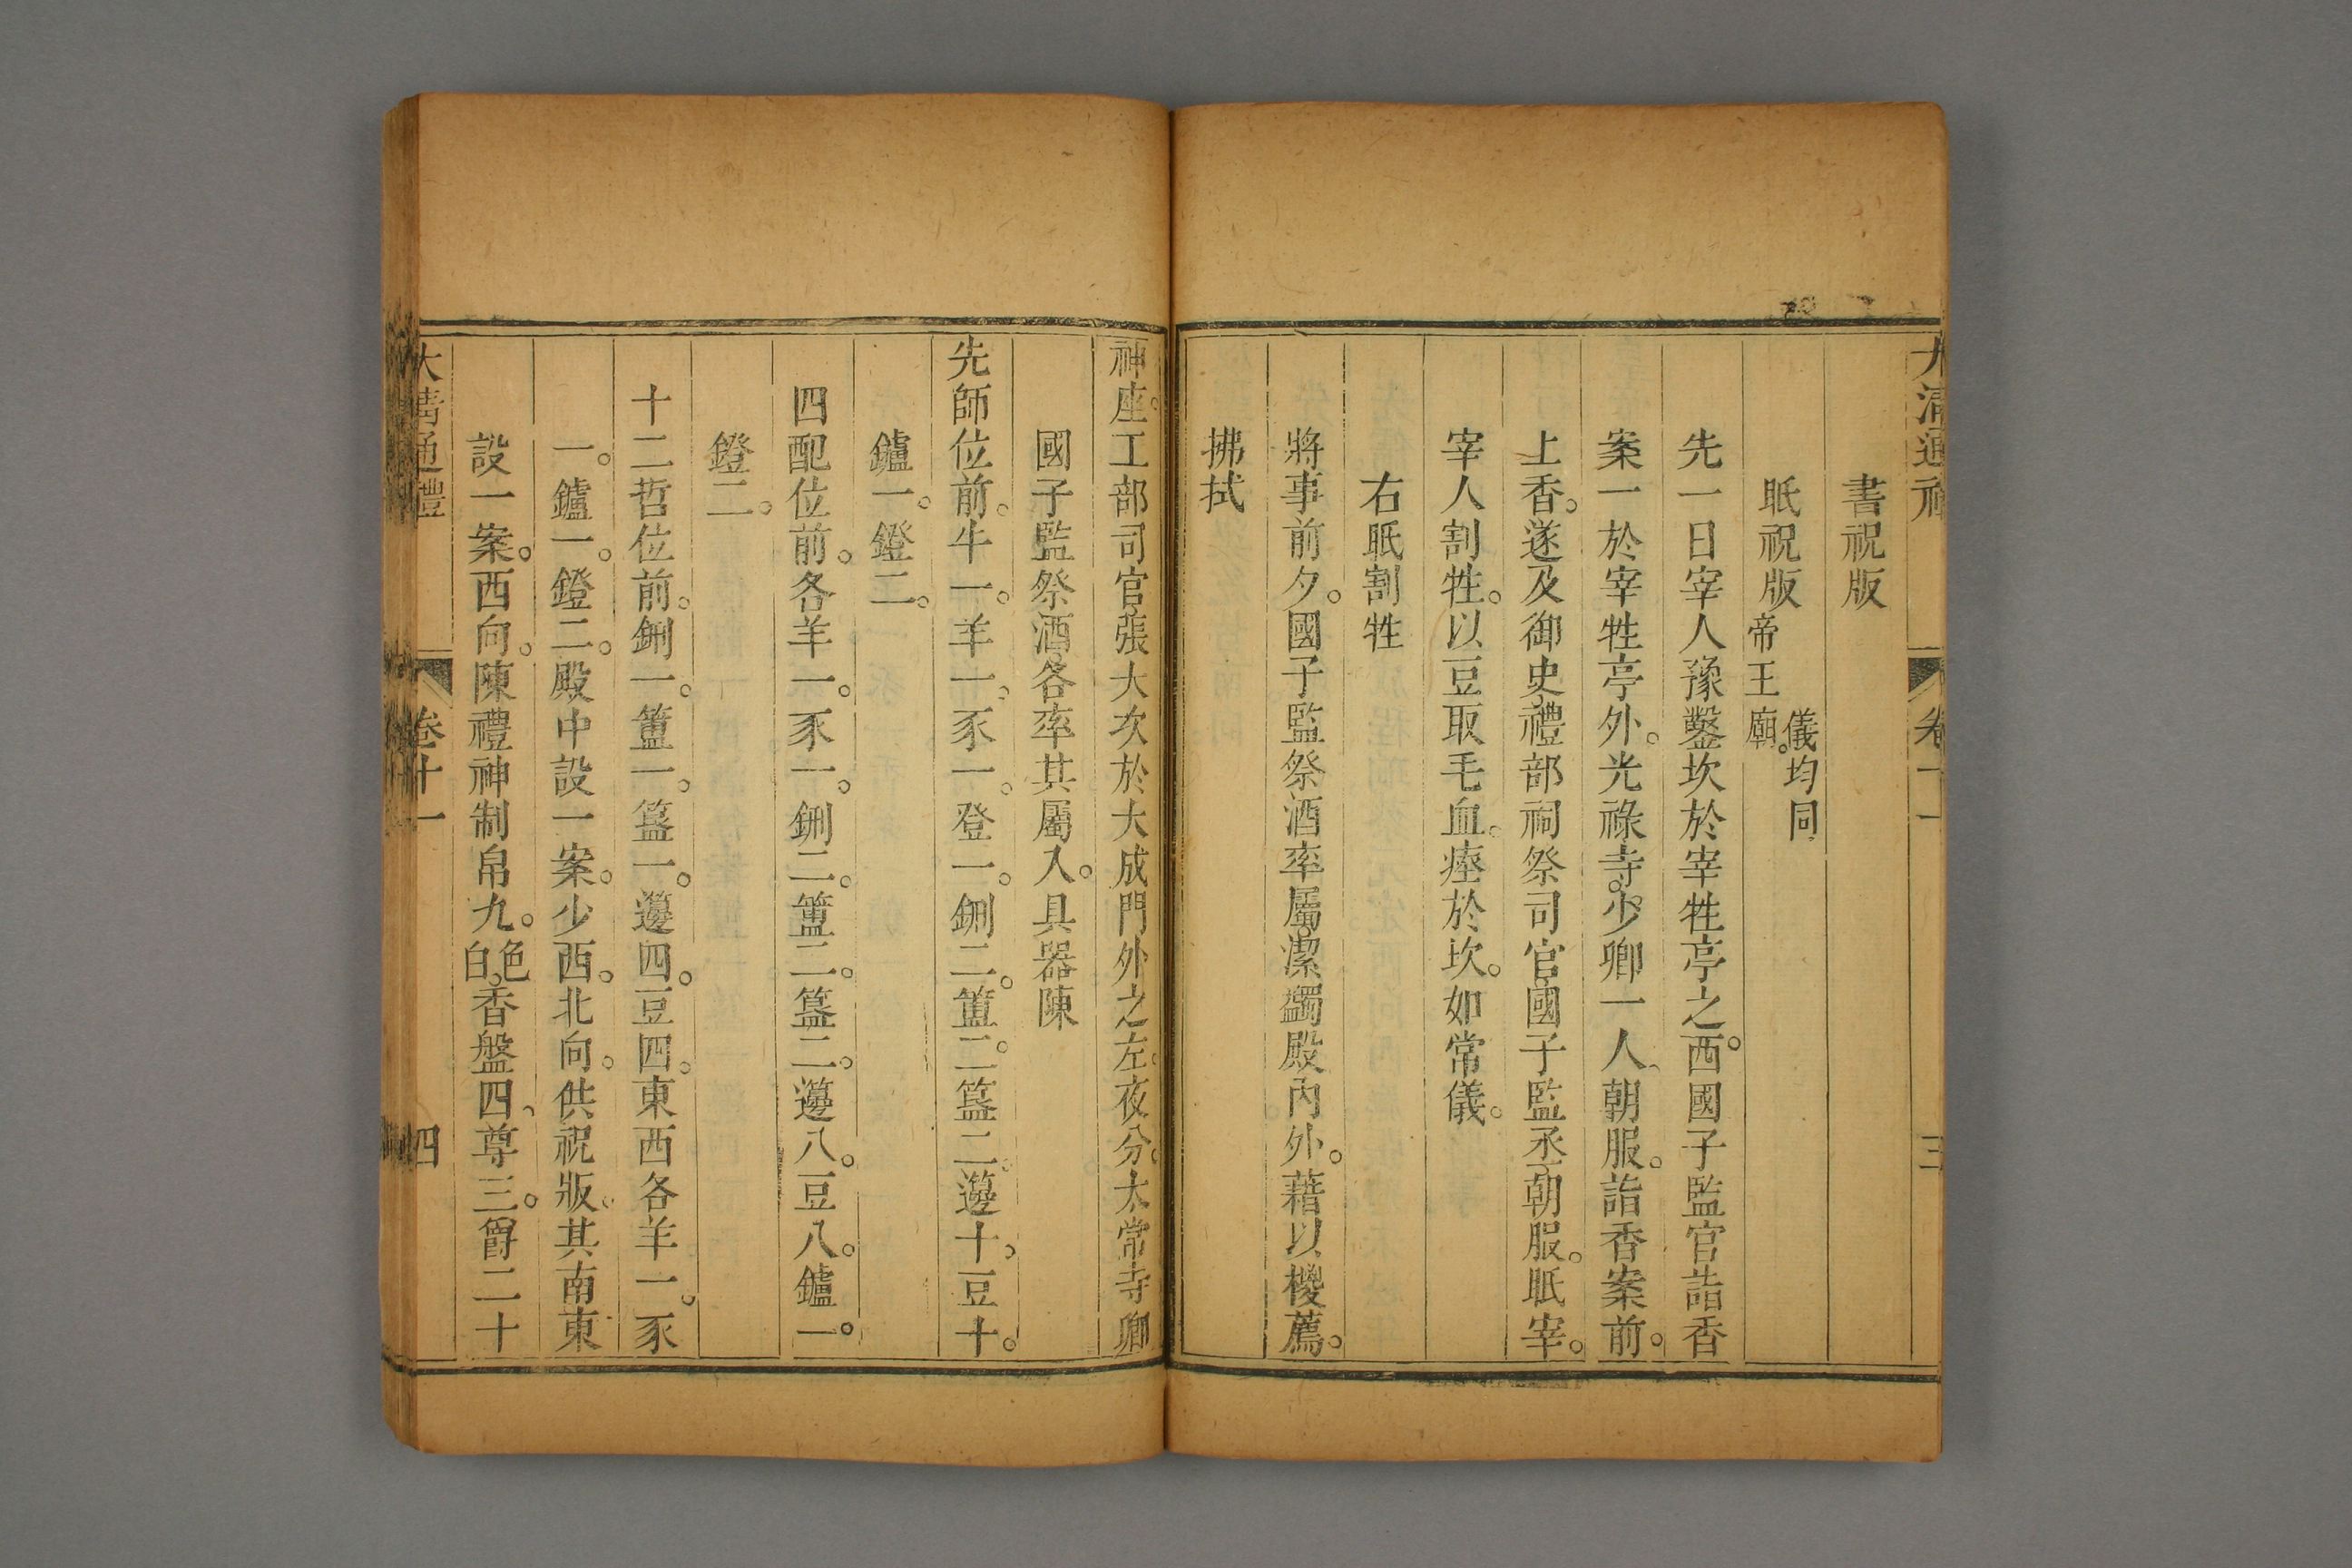 大清通禮 卷十一 三
書祝版
眂祝版帝王廟。儀均同
先一日宰人豫鑿坎於宰牲亭之西。國子監官詣香
案一於宰牲亭外。光祿寺。少卿一人、朝服。詣香案前。
上香。遂及御史、禮部祠祭司官、國子監丞、朝服。眂宰。
宰人割牲。以豆取毛血。瘞於坎。如常儀。
右眂割牲
將事前夕。國子監祭酒率屬、潔蠲殿內外。藉以椶薦。
拂拭
神座。工部司官、張大次於大成門外之左。夜分。太常寺卿
國子監祭酒、各率其屬入。具器陳
先師位前。牛一。羊一。豕一。登一。鉶二。簠二。簋二。籩十。豆十。
鑪一。鐙二。
四配位前。各羊一。豕一。鉶二。簠二。簋二。籩八。豆八。鑪一。
鐙二。
十二哲位前。鉶一。簠一。簋一。籩四。豆四。東西各羊一。豕
一。鑪一。鐙二。殿中設一案。少西。北向。供祝版。其南東
設一案。西向。陳禮神制帛九。色白。香盤四、尊三。爵二十
大清通禮 卷十一 四